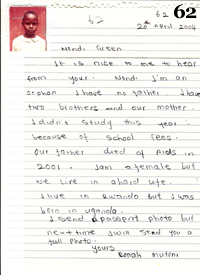 62 62
62
20th April 2004
Nandi Green
It is nice to me to hear
from your. Nandi I'm an
orphan I have no father I have
two brothers and our mother.
I didn't study this year
because of school fees.
Our father died of Aids in
2001. Iam a female but
we live in ahard life.
I live in Rwanda but I was
born in uganda.
I send a passport photo but
next time I win send you a
full photo.
yours
Ronah mutoni